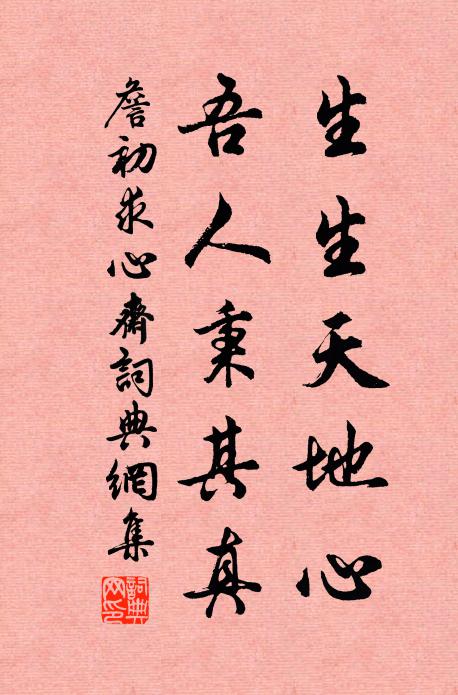 生生天地心
吾人秉其真
詹初求心齋詞典網集
詞典
网印